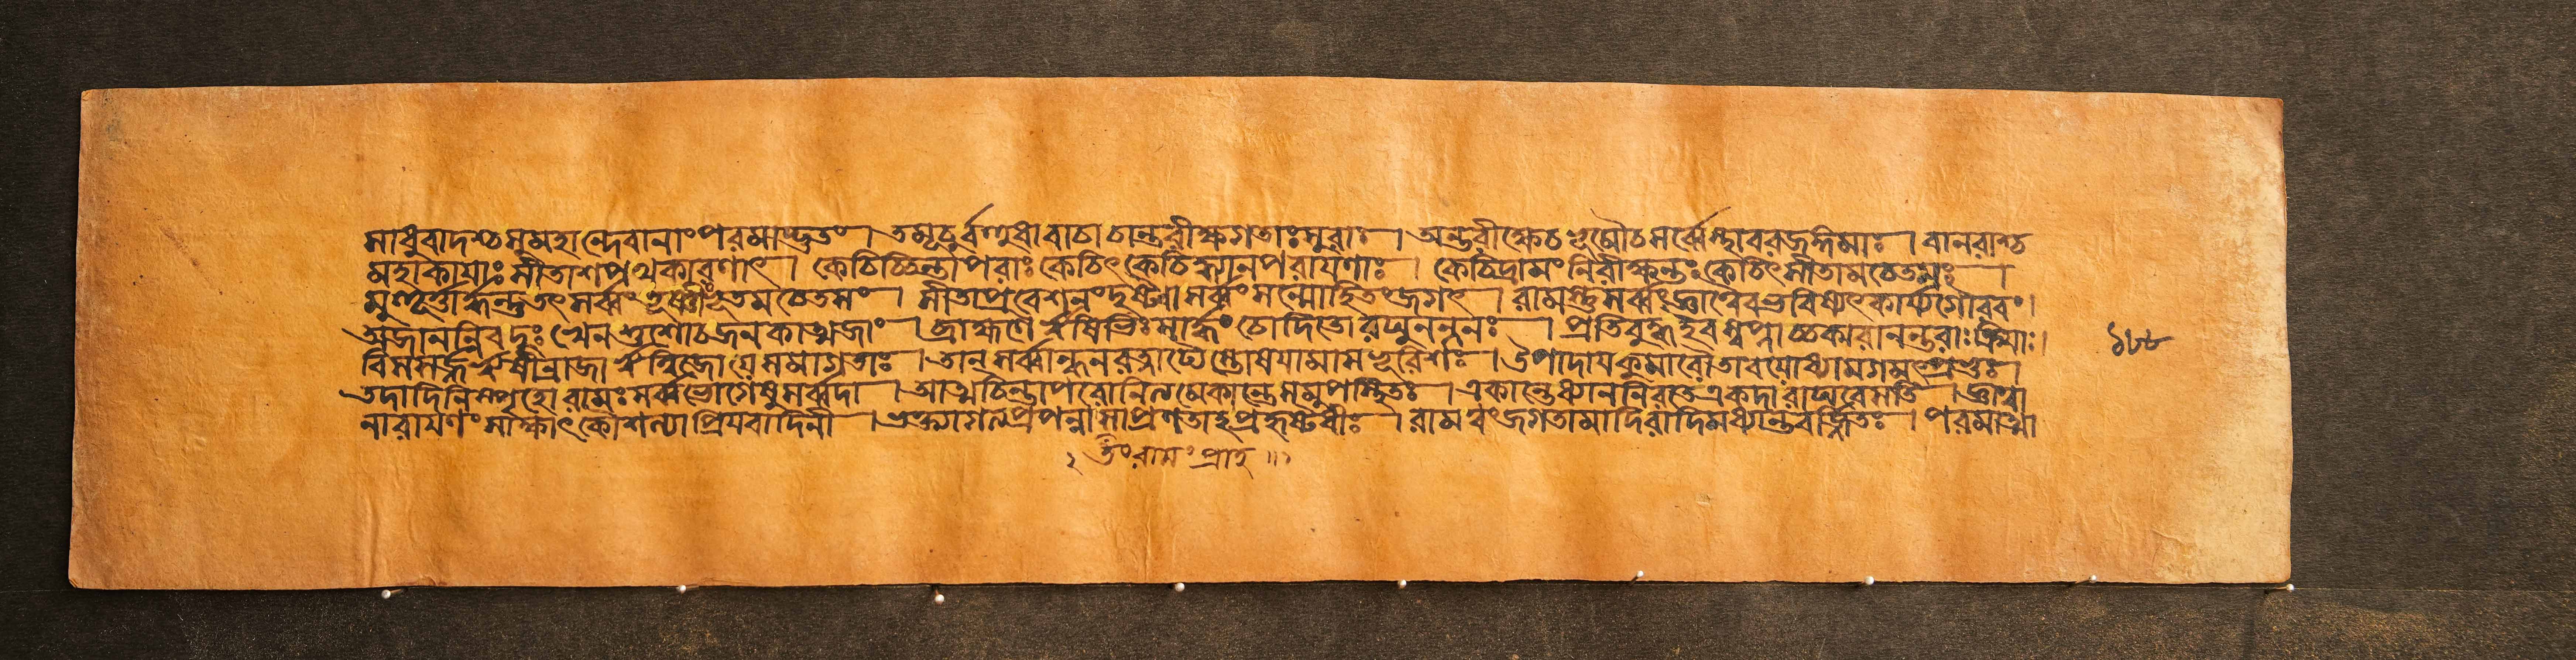 সাধুবাদশ্চসুমহান্দেবানাংপরমাদ্ভুতঃ। তমূচুর্বহুধাবাচাচান্তরীক্ষগতাঃসুরাঃ। অন্তরীক্ষেচভূমৌচসর্ব্বেস্থাবরজঙ্গমাঃ। বানরাশ্চ
মহাকায়াঃসীতাশপথকারণাৎ। কেচিচ্চিন্তাপরাঃকেচিৎকেচিদ্ধ্যানপরায়ণাঃ। কেচিদ্রামংনিরীক্ষন্তঃকেচিৎসীতামচেতসঃ।
মুহূর্ত্তার্দ্ধন্তুতৎসর্ব্বংতূষ্ণীংভূতমচেতসং। সীতাপ্রবেশনংদৃষ্ট্বাসর্ব্বংসম্মোহিতংজগৎ। রামস্তুসর্ব্বংজ্ঞাত্বৈবভবিষ্যৎকার্য্যগৌরবং।
অজানন্নিবদুঃখেনশুশোচজনকাত্মজাং। ব্রাহ্মণৈঋষিভিঃসার্দ্ধংচোদিতোরঘুনন্দনঃ। প্রতিবুদ্ধইবস্বপ্নাচ্চকারানন্তরাঃক্রিয়াঃ।
বিসসর্জ্জঋষীন্রাজাঋত্বিজোযেসমাগতাঃ। তান্সর্ব্বান্ধনরত্নাদ্যৈস্তোষয়ামাসভূরিশঃ। উপাদায়কুমারৌতাবযোধ্যামগমৎপ্রভুঃ।
তদাদিনিস্পৃহোরামঃসর্ব্বভোগেষুসর্ব্বদা। আত্মচিন্তাপরোনিত্যমেকান্তেসমুপস্থিতঃ। একান্তেধ্যাননিরতেএকদারাঘবেসতি। জ্ঞাত্বা
নারায়ণংসাক্ষাৎকৌশল্যাপ্রিয়বাদিনী। ভক্ত্যাগত্যপ্রপন্নাসাপ্রণতাহপ্রহৃষ্টধীঃ। রামত্বংজগতামাদিরাদিমধ্যান্তবর্জ্জিতঃ। পরমাত্মা
১৮৮